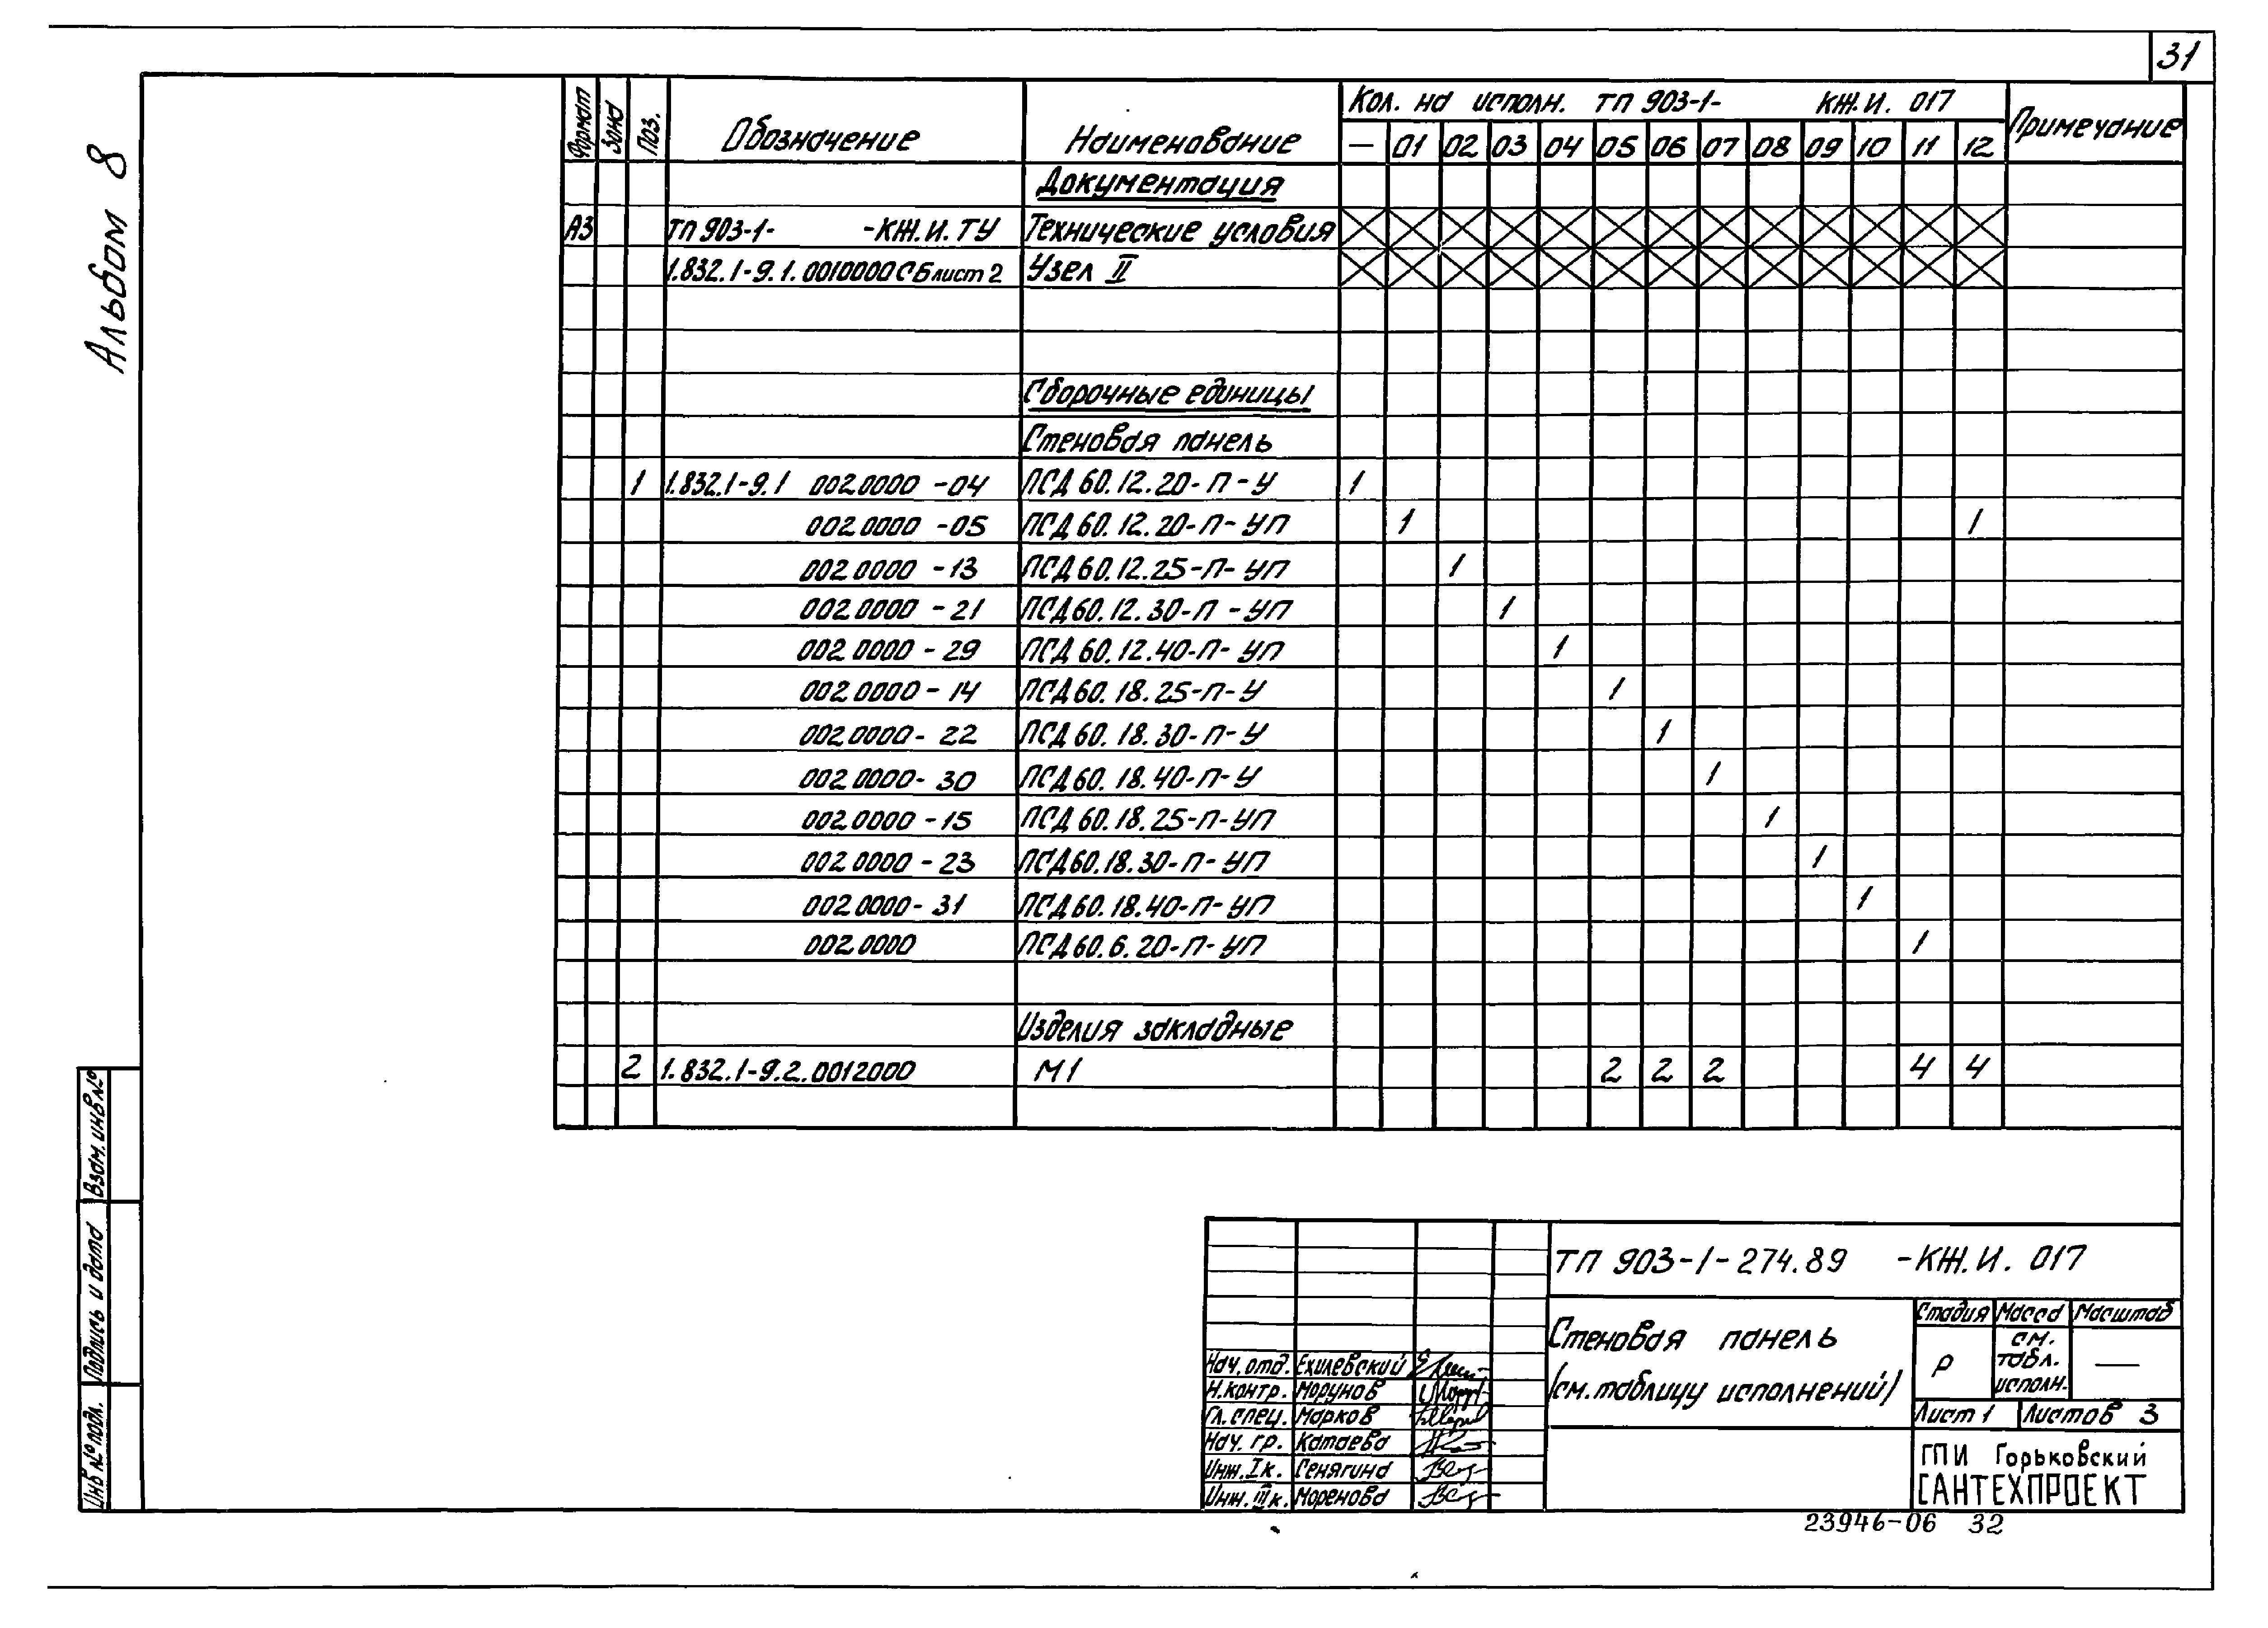 31
Альбом 8
Формат Зона Поз. Обозначение Наименование Кол. на исполн. ТП 903-1- КЖ.И. 017 Примечание
— 01 02 03 04 05 06 07 08 09 10 11 12
Документация
А3 ТП 903-1- -КЖ.И.ТУ Технические условия
1.832.1-9.1.0010000СБ лист 2 Узел II
Сборочные единицы
Стеновая панель
1 1.832.1-9.1 002.0000 -04 ПСД 60.12.20-П-У 1
002.0000 -05 ПСД 60.12.20-П-УП 1 1
002.0000 -13 ПСД 60.12.25-П-УП 1
002.0000 -21 ПСД 60.12.30-П-УП 1
002.0000 -29 ПСД 60.12.40-П-УП 1
002.0000 -14 ПСД 60.18.25-П-У 1
002.0000 -22 ПСД 60.18.30-П-У 1
002.0000 -30 ПСД 60.18.40-П-У 1
002.0000 -15 ПСД 60.18.25-П-УП 1
002.0000 -23 ПСД 60.18.30-П-УП 1
002.0000 -31 ПСД 60.18.40-П-УП 1
002.0000 ПСД 60.6.20-П-УП 1
Изделия закладные
2 1.832.1-9.2.0012000 М1 2 2 2 4 4
Взам. инв №
Подпись и дата
Инв № подл.
ТП 903-1-274.89 -КЖ.И. 017
Стеновая панель
(см. таблицу исполнений)
Стадия Масса Масштаб
Р см. табл. исполн. —
Лист 1 Листов 3
Нач. отд. Ехилевский
Н. контр. Морунов
Гл. спец. Марков
Нач. гр. Катаева
Инж. Iк. Сенягина
Инж. IIIк. Моренова
ГПИ Горьковский
САНТЕХПРОЕКТ
23946-06 32